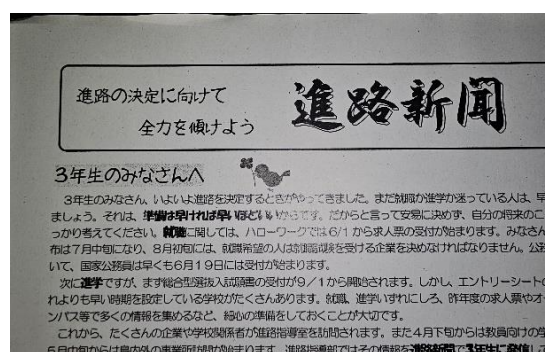 進路の決定に向けて
全力を傾けよう
進路新聞
3年生のみなさんへ
3年生のみなさん、いよいよ進路を決定するときがやってきました。まだ就職か進学か迷っている人は、早
ましょう。それは、準備は早ければ早いほどいいからです。だからと言って安易に決めず、自分の将来のこ
っかり考えてください。就職に関しては、ハローワークでは6/1から求人票の受付が始まります。みなさん
布は7月中旬になり、8月初旬には、就職希望の人は就職試験を受ける企業を決めなければなりません。公
いて、国家公務員は早くも6月19日には受付が始まります。
次に進学ですが、まず総合型選抜入試願書の受付が9/1から開始されます。しかし、エントリーシートの
れよりも早い時期を設定している学校がたくさんあります。就職、進学いずれにしろ、昨年度の求人票やオー
ンパス等で多くの情報を集めるなど、細心の準備をしておくことが大切です。
これから、たくさんの企業や学校関係者が進路指導室を訪問されます。また4月下旬からは教員向けの学
5月中旬からは県内外の事業所訪問が始まります。進路指導部ではその情報を進路新聞で3年生に発信して